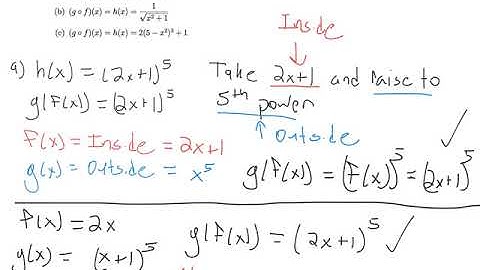 (b) (g ∘ f)(x) = h(x) = 1/√(x²+1)
(c) (g ∘ f)(x) = h(x) = 2(5 − x²)³ + 1
Inside
a) h(x) = (2x+1)⁵
Take 2x+1 and raise to
5th power
g(f(x)) = (2x+1)⁵
↑ Outside
f(x) = Inside = 2x+1
g(x) = Outside = x⁵
g(f(x)) = (f(x))⁵ = (2x+1)⁵ ✓
f(x) = 2x
g(f(x)) = (2x+1)⁵ ✓
g(x) = (x+1)⁵